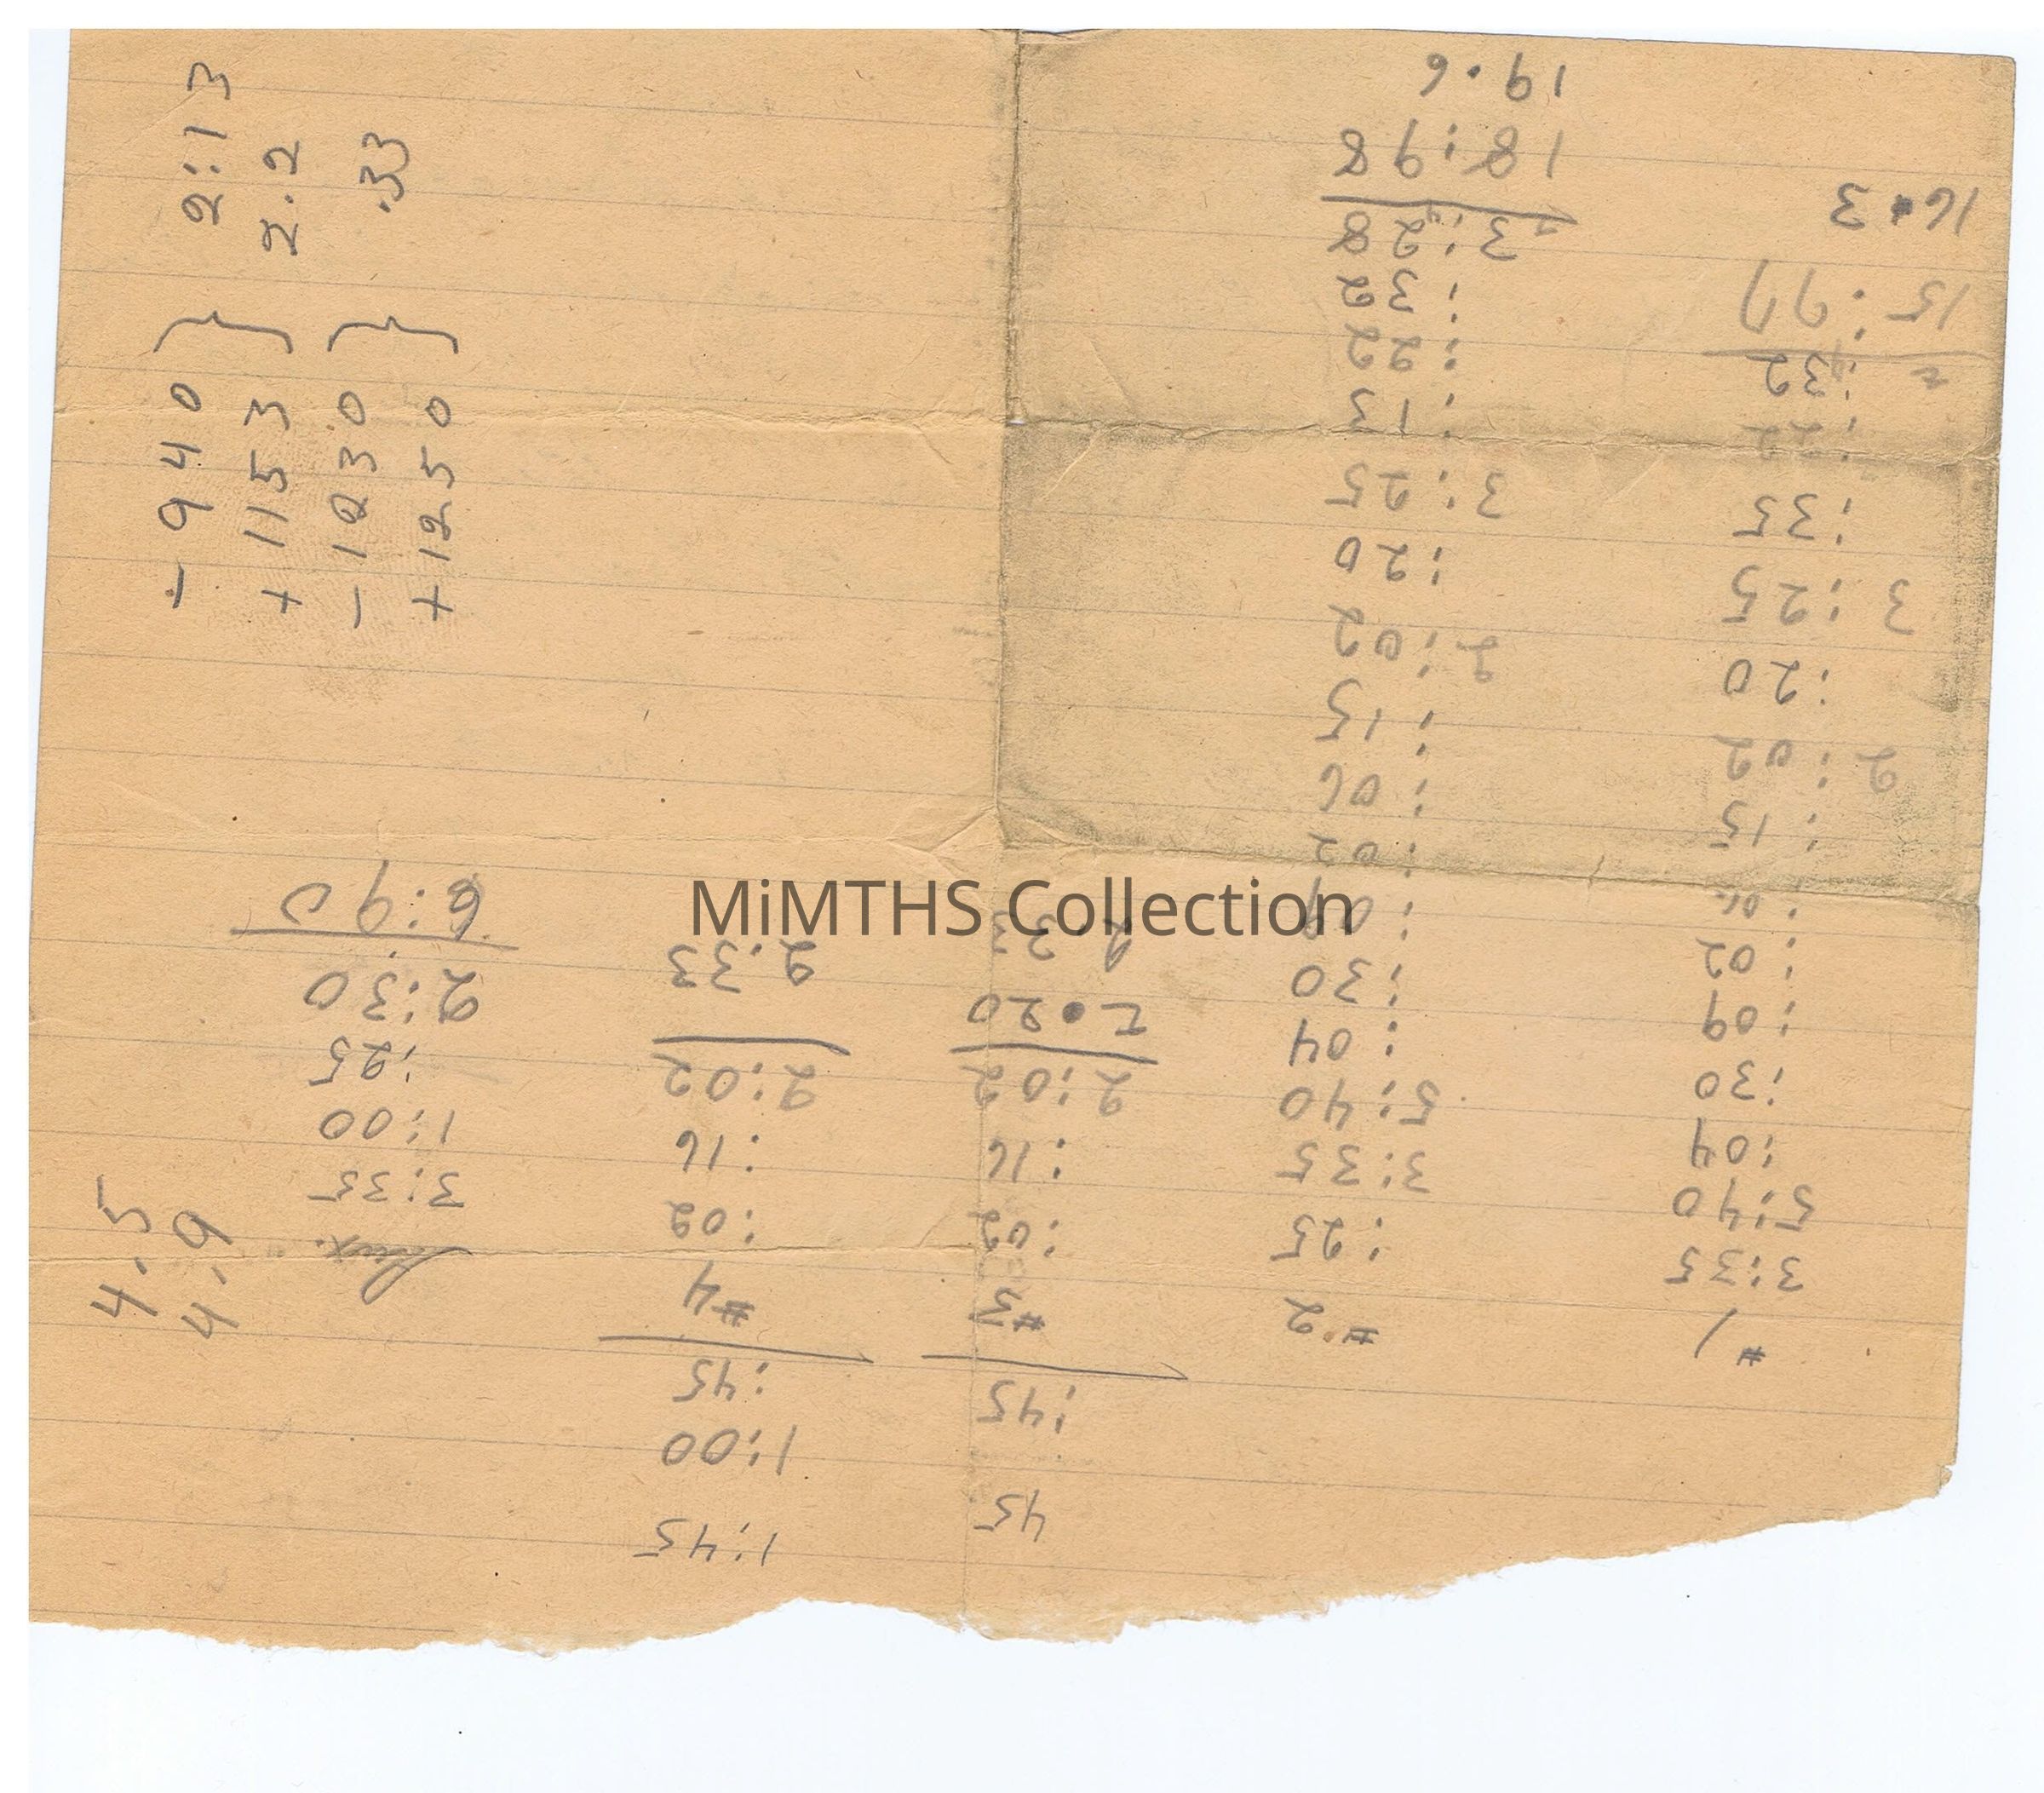 # 1
3:35
5:40
:04
:30
:09
:02
:06
:15
2:02
:20
3:25
:35
:22
:32
15:97
16.3
# 2
:25
3:35
5:40
:04
:30
:09
:02
:06
:15
2:02
:20
3:25
:13
:22
:32
3:28
18:98
19.6
45
:45
#3
:02
:16
2:02
2.20
2.33
1:45
1:00
:45
#4
:02
:16
2:02
2:33
3:35
1:00
:25
2:30
6:90
- 940 } 2:13
+ 1153 2.2
- 1230 } .33
+ 1250
4.5
4.9
MiMTHS Collection